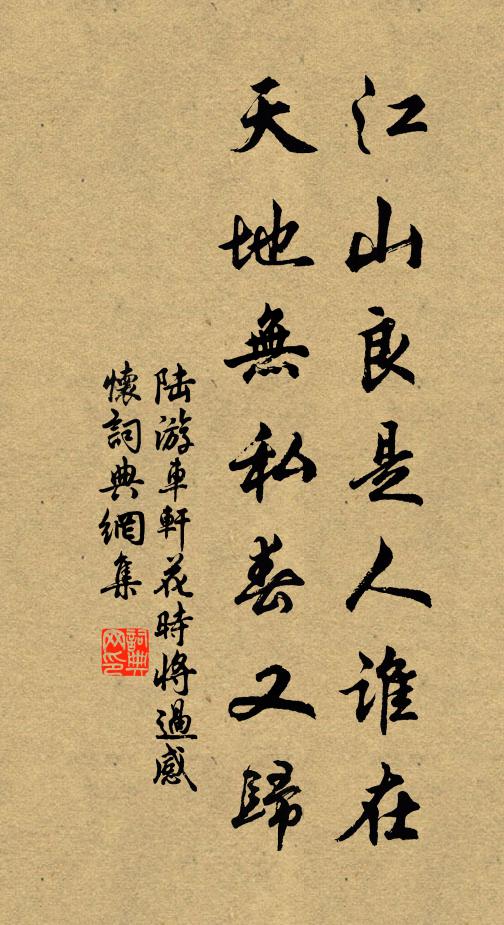 江山良是人谁在
天地無私春又歸
陆游車軒花時將過感
懷詞典網集
詞典网印